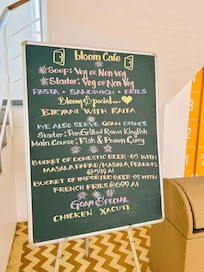 bloom Cafe
Soup: Veg or Non veg
Starter: Veg or Non Veg
PASTA · SANDWICH · FRIES
Bloom Special...
BIRYANI WITH RAITA
WE ALSO SERVE GOAN DISHES
Starter: Pan Grilled Rawa Kingfish
Main Course: Fish & Prawn Curry
BUCKET OF DOMESTIC BEER - 05 WITH
MASALA PAPAD/MASALA PEANUTS
@599 AI
BUCKET OF IMPORTED BEER - 05 WITH
FRENCH FRIES @699 AI
GOAN SPECIAL
CHICKEN XACUTI